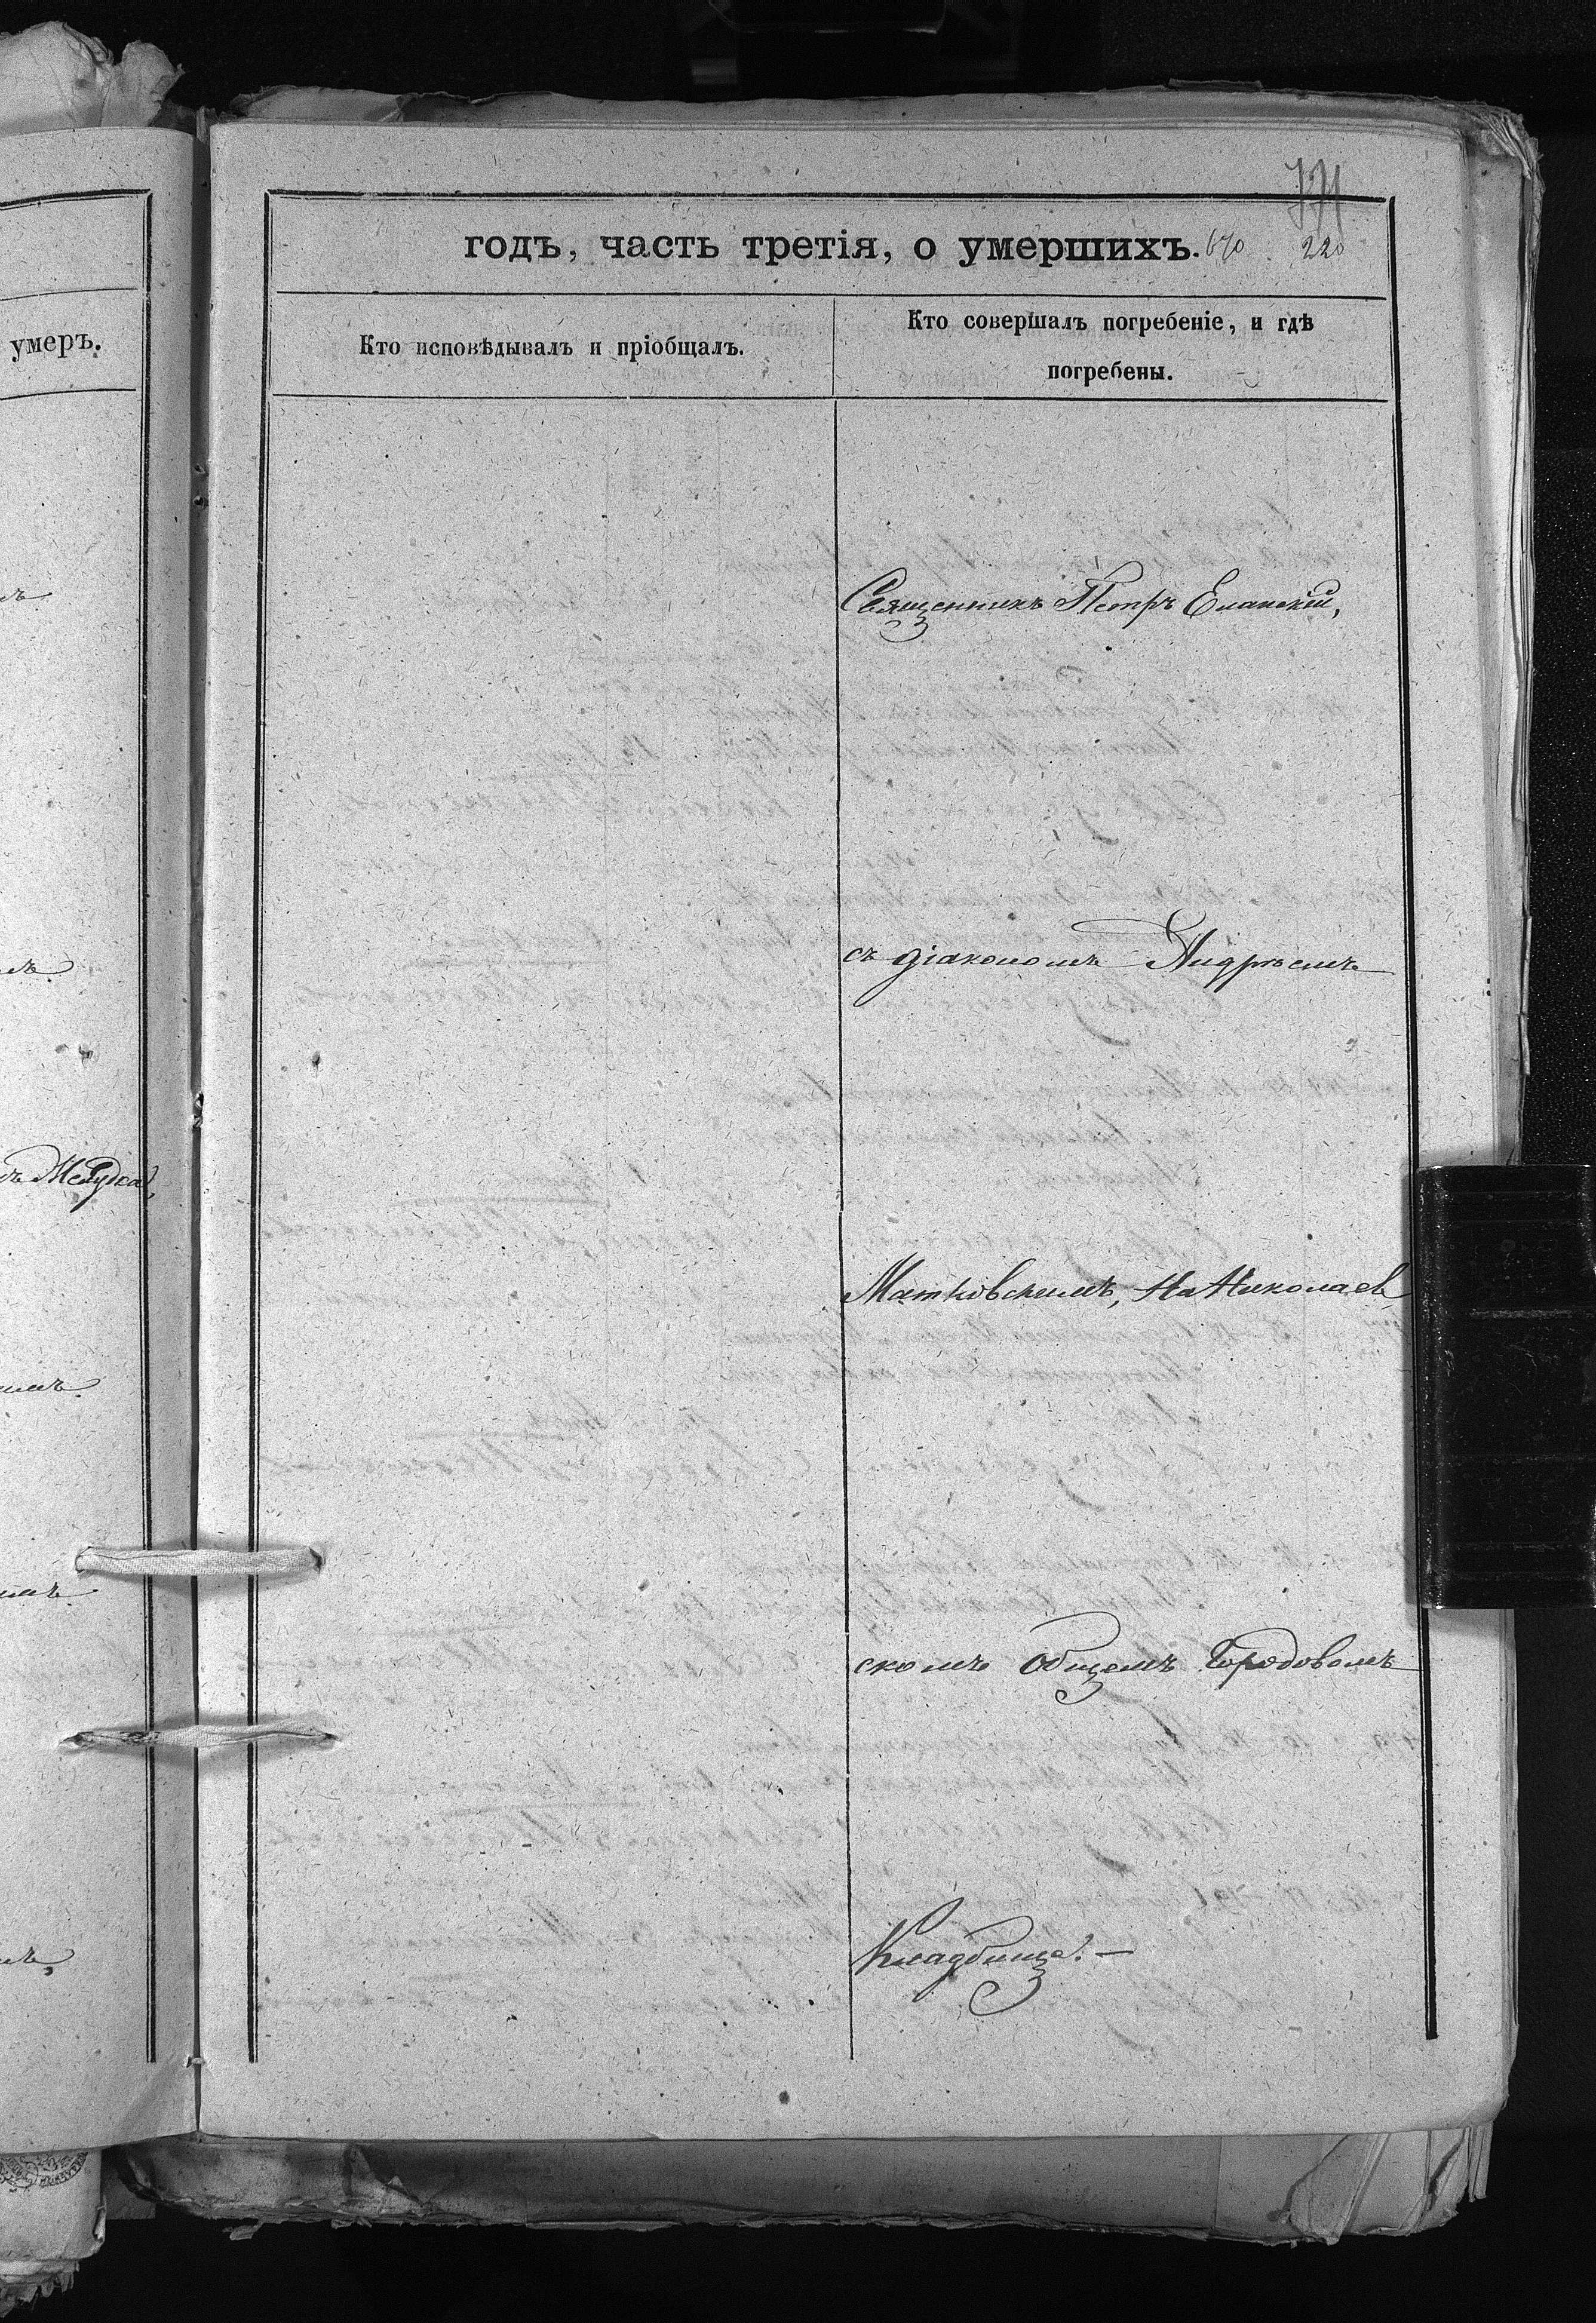 годъ, часть третія, о умершихъ. 670 220
умеръ.
Кто исповѣдывалъ и пріобщалъ.
Кто совершалъ погребеніе, и гдѣ
погребены.
Священникъ Петръ Еланскій,
съ діакономъ Андреемъ
Матковскимъ, На Николаев
скомъ общемъ Городовомъ
Кладбище. —